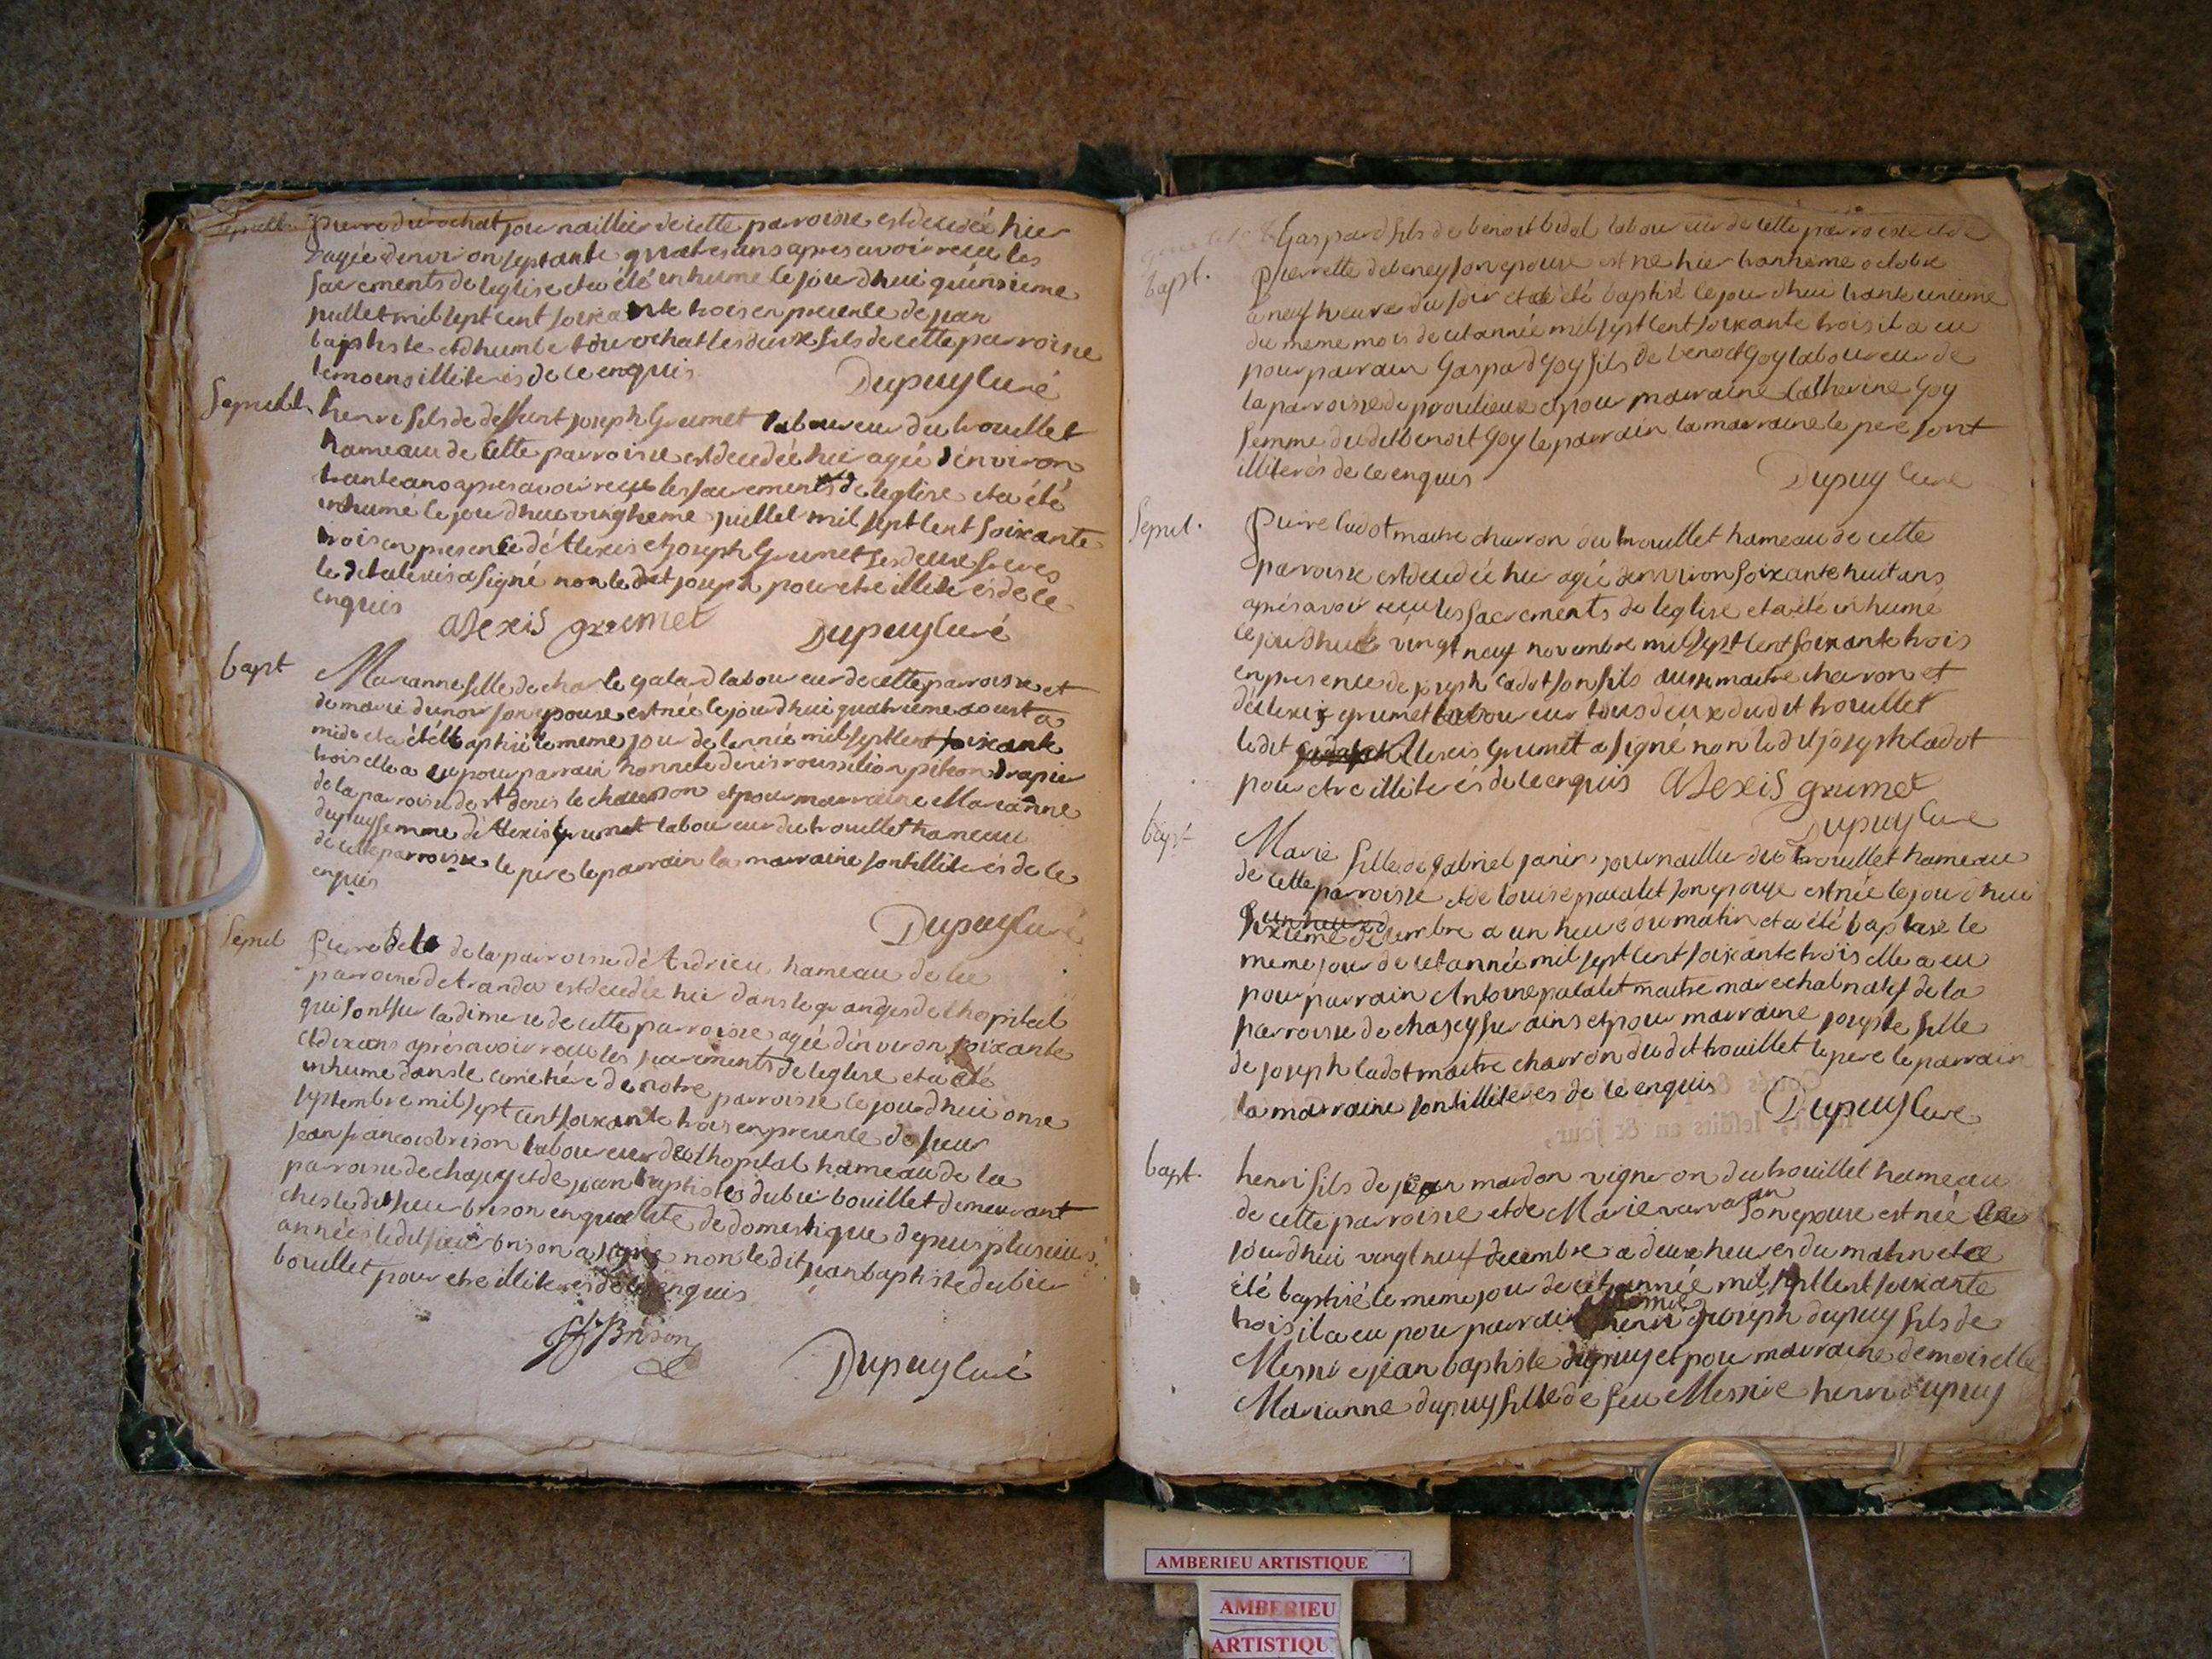 Sepult. pierre durochat journaillier de cette parroisse est decedée hier
agée denviron septante quatre ans apres avoir receu les
sacrements de leglise et a été inhume le jourdhui quinsieme
juillet mil sept cent soixante trois en presence de jean
baptiste et dhumbert durochat les deux fils de cette parroisse
temoins illiterés de ce enquis Dupuy Curé
Sepult. henri fils de deffunt joseph Grumet laboureur du trouillet
hameau de cette parroisse est decedée hier agée denviron
trante ans apres avoir reçue les sacrements de leglise et a été
inhumé le jourdhui vinghieme juillet mil sept cent soixante
trois en presence d'Alexis et joseph Grumet ses deux freres
le dit alexis a signé non le dit joseph pour etre illiterés de ce
enquis alexis grumet Dupuy Curé
bapt Marianne fille de charle galand laboureur de cette parroisse et
de marie dunor son epouse est née le jourdhui quatrieme aoust a
midi et a été baptisé le meme jour de lannée mil sept cent soixante
trois elle a eu pour parrain honnete denis roussilion drapier
de la parroisse de st denis le chausson et pour marraine Marianne
dupuy femme d'Alexis Grumet laboureur du trouillet hameau
de cette parroisse le pere le parrain la marraine sont illiterés de ce
enquis
Dupuy Curé
Sepul pierre de la parroisse d'Andrieu hameau de la
parroisse de est decedée hier dans le granges de lhopital
qui sont sur la dimerie de cette parroisse agée denviron soixante
et dix ans après avoir reçue les sacrements de leglise et a été
inhume dans le cimetiére de notre parroisse le jourdhui onse
septembre mil sept cent soixante trois en presence de sieur
jean francois brison laboureur de lhopital hameau de la
parroisse de chasey et de jean baptiste dubier bouillet demeurant
ches le dit sieur brison en qualité de domestique depuis plusieurs
années le dit sieur brison a signé non le dit jean baptiste dubier
bouillet pour etre illiterés de ce enquis
Brison
Dupuy Curé
bapt. Gaspard fils de benoit bidal laboureur de cette parroisse et de
pierrette debeney son epouse est né hier trantieme octobre
a neuf heure du soir et a été baptisé le jourdhui trante unieme
du meme mois de cet année mil sept cent soixante trois il a eu
pour parrain Gaspard Goy fils de benoit Goy laboureur de
la parroisse de proulieux et pour marraine Catherine Goy
femme dudit benoit Goy le parrain la marraine le pere sont
illiterés de ce enquis Dupuy Cure
Sepul. pierre Cadot maitre charron du trouillet hameau de cette
parroisse est decedée hier agée denviron soixante huit ans
aprés avoir receu les sacrements de leglise et a été inhumé
le jourdhui vingt neuf novembre mil sept cent soixante trois
en presence de joseph Cadot son fils aussi maitre charon et
d'alexis grumet laboureur tous deux dudit trouillet
le dit Alexis Grumet a signé non le dit joseph Cadot
pour etre illiterés de ce enquis alexis grumet
Dupuy Cure
bapt Marie fille de gabriel janin journaillier du trouillet hameau
de cette parroisse et de louise pacalet son epouse est née le jourdhui
sixieme decembre a un heure du matin et a été baptisé le
meme jour de cet année mil sept cent soixante trois elle a eu
pour parrain Antoine pacalet maitre marechal natif de la
parroisse de chasey sur ains et pour marraine josepte fille
de joseph Cadot maitre charron dudit trouillet le pere le parrain
la marraine sont illiteres de ce enquis Dupuy Cure
bapt. henri fils de jean mardon vigneron du trouillet hameau
de cette parroisse et de Marie son epouse est née le
jourdhui vingt neuf decembre a deux heures du matin et a
été baptisé le meme jour de cet année mil sept cent soixante
trois il a eu pour parrain henri joseph dupuy fils de
Messire jean baptiste dupuy et pour marraine demoiselle
Marianne dupuy fille de feu Messire henri dupuy
AMBERIEU ARTISTIQUE
AMBERIEU
ARTISTIQU